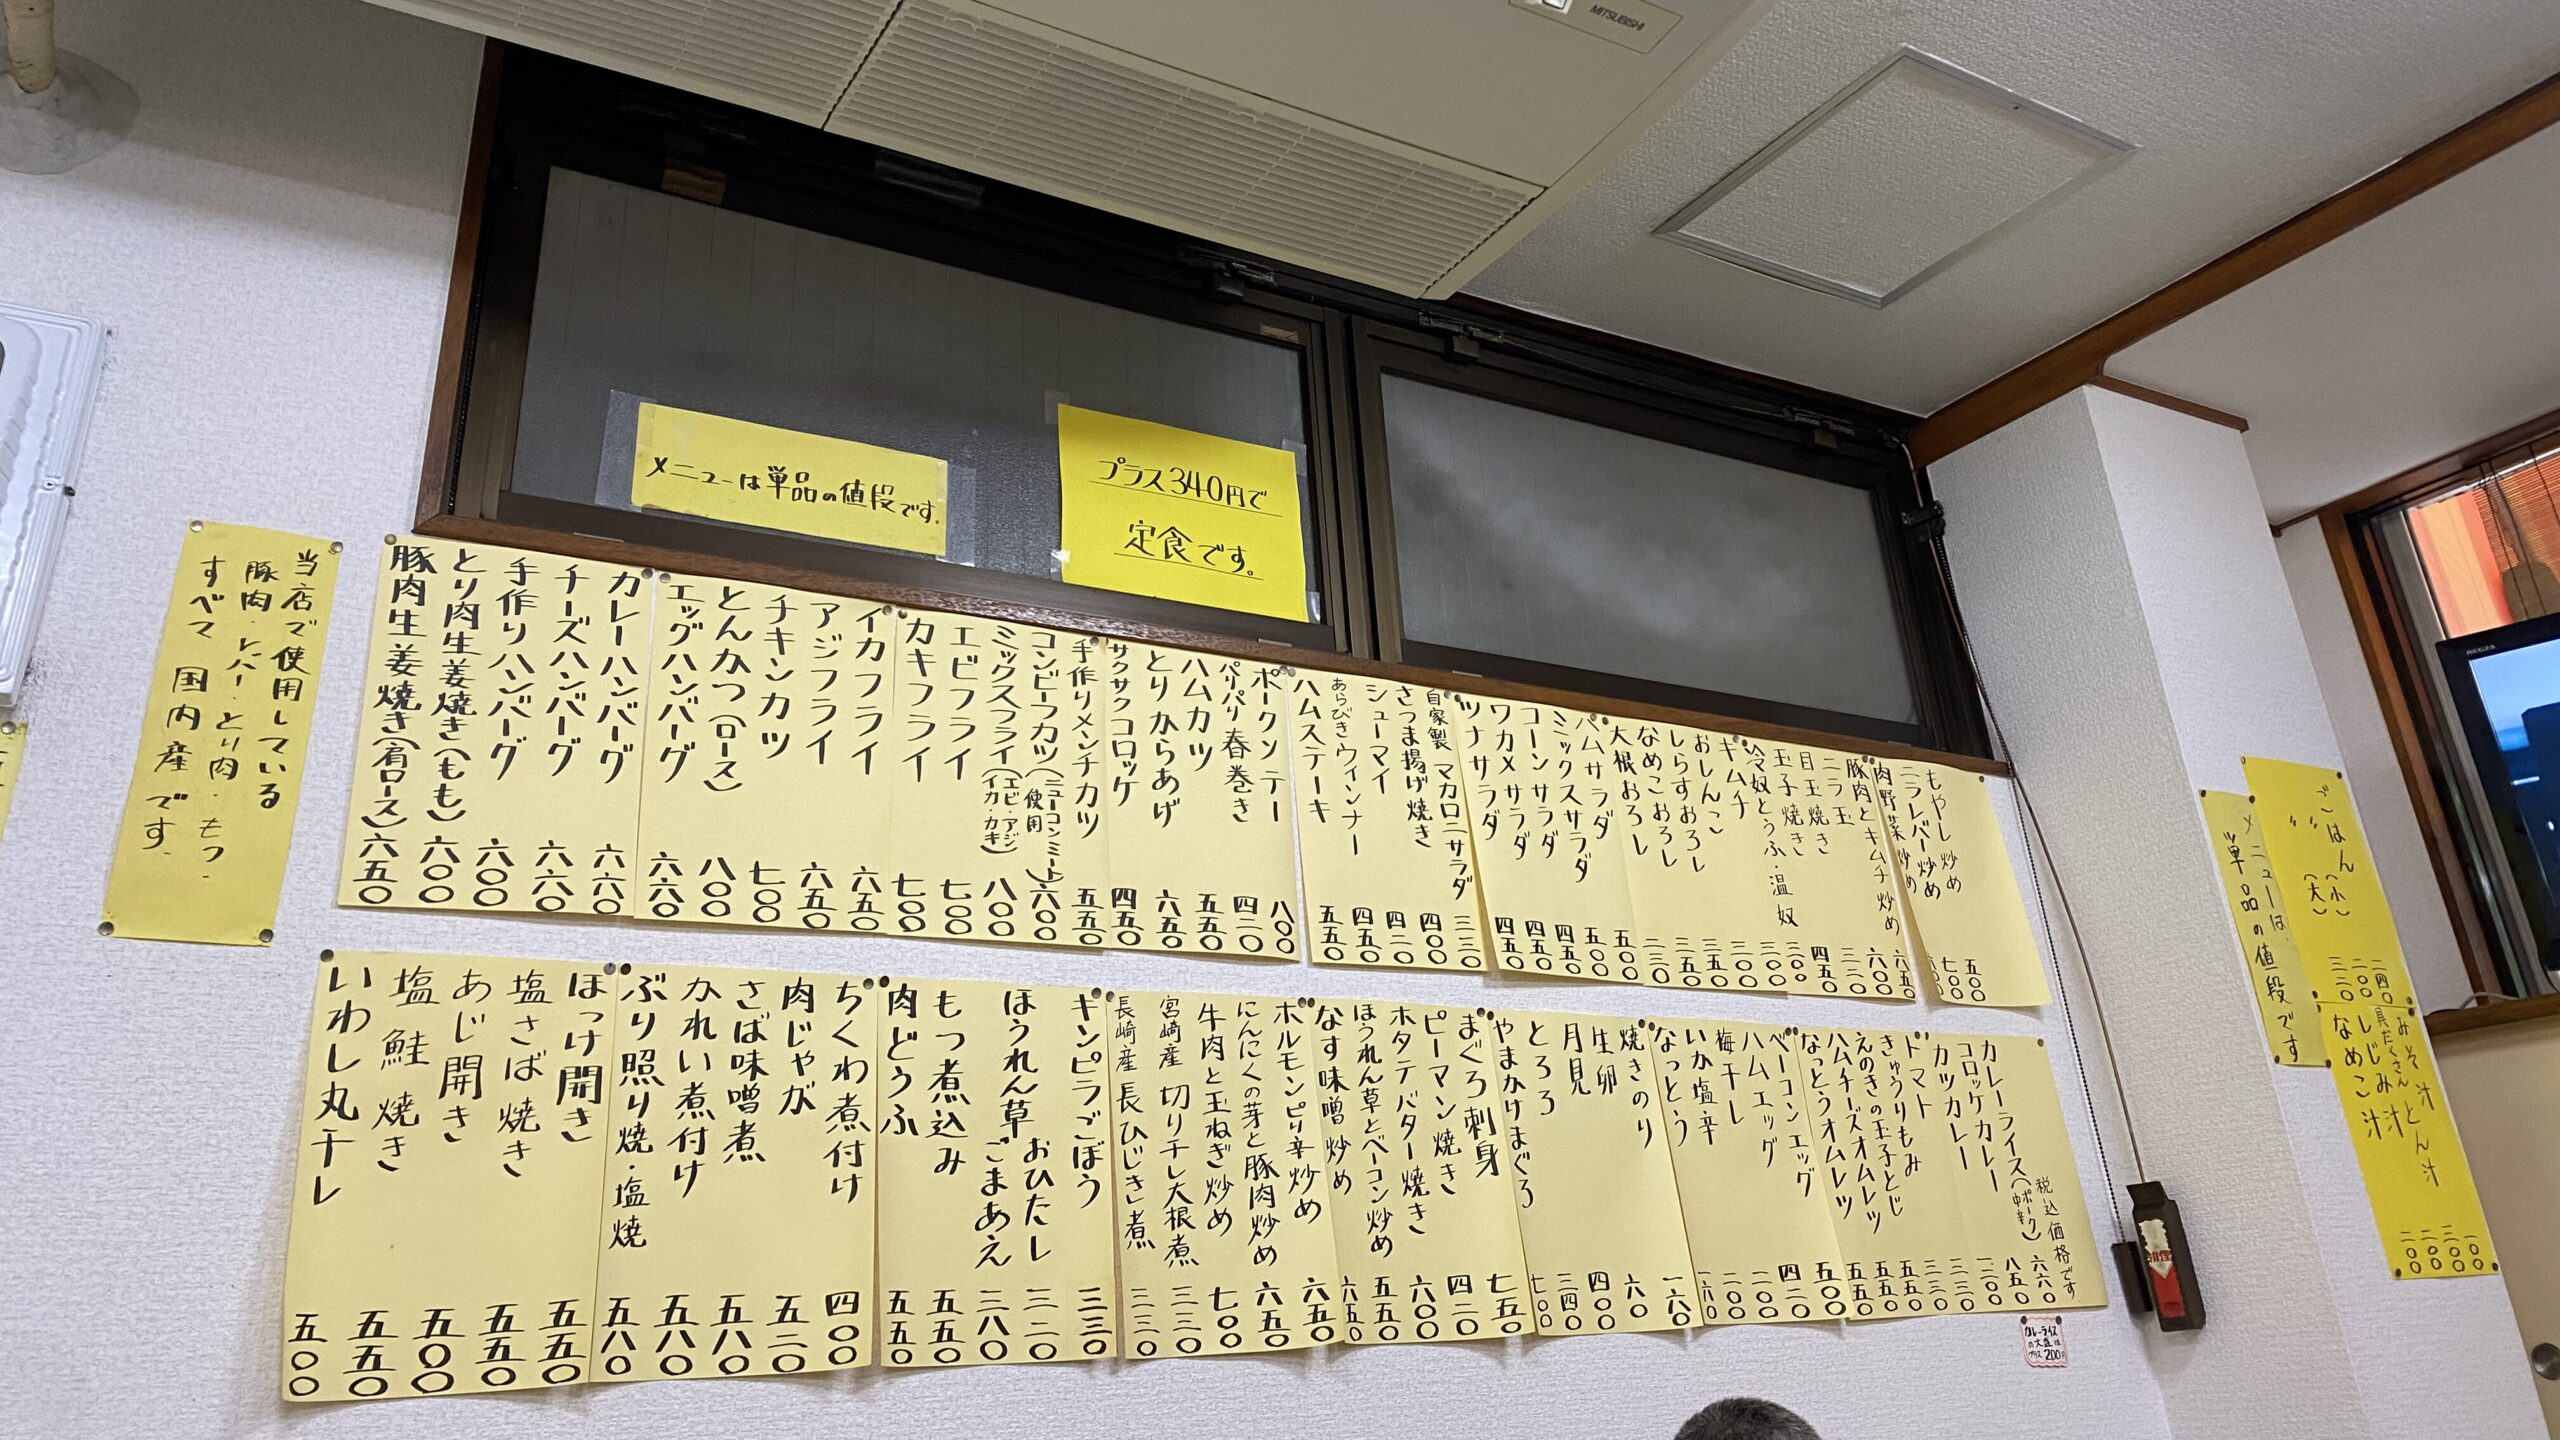 MITSUBISHI
メニューは単品の値段です。
プラス340円で
定食です。
REGZA
当店で使用している
豚肉・レバー・とり肉・もつ・
すべて国内産です。
もやし炒め 五〇〇
ニラレバー炒め 七〇〇
肉野菜炒め
豚肉とキムチ炒め 六五〇
ニラ玉 六〇〇
目玉焼き 三二〇
玉子焼き 四五〇
冷奴とうふ・温奴 三〇〇
キムチ 三〇〇
おしんこ 三〇〇
しらすおろし 三五〇
なめこおろし 三五〇
大根おろし 二三〇
ハムサラダ 五〇〇
ミックスサラダ 五〇〇
コーンサラダ 四五〇
ワカメサラダ 四五〇
ツナサラダ 四五〇
自家製マカロニサラダ 三三〇
さつま揚げ焼き 四〇〇
シューマイ 四二〇
あらびきウィンナー 四五〇
ハムステーキ 五五〇
ポークソテー 八〇〇
パリパリ春巻き 四二〇
ハムカツ 五五〇
とりからあげ 六五〇
サクサクコロッケ 四五〇
手作りメンチカツ 五五〇
コンビーフカツ(ニューコンミート使用) 六〇〇
ミックスフライ(エビ・アジ・イカ・カキ) 八〇〇
エビフライ 七〇〇
カキフライ 七〇〇
イカフライ 六五〇
アジフライ 六五〇
チキンカツ 七〇〇
とんかつ(ロース) 八〇〇
エッグハンバーグ 六六〇
カレーハンバーグ 六六〇
チーズハンバーグ 六六〇
手作りハンバーグ 六〇〇
とり肉生姜焼き(もも) 六〇〇
豚肉生姜焼き(肩ロース) 六五〇
税込価格です
カレーライス(ポーク中辛) 六六〇
コロッケカレー 八五〇
カツカレー 一二〇〇
トマト 三三〇
きゅうりもみ 三三〇
えのきの玉子とじ 五五〇
ハムチーズオムレツ 五五〇
なっとうオムレツ 五五〇
ベーコンエッグ 五〇〇
ハムエッグ 四二〇
梅干し 二〇〇
いか塩辛 二〇〇
なっとう 一六〇
焼きのり 一六〇
生卵 六〇
月見 四〇〇
とろろ 三四〇
やまかけまぐろ 七〇〇
まぐろ刺身 七五〇
ピーマン焼き 四二〇
ホタテバター焼き 六〇〇
ほうれん草とベーコン炒め 五五〇
なす味噌炒め 六五〇
ホルモンピリ辛炒め 六五〇
にんにくの芽と豚肉炒め 六五〇
牛肉と玉ねぎ炒め 七〇〇
宮崎産切り干し大根煮 三三〇
長崎産長ひじき煮 三三〇
キンピラごぼう 三三〇
ほうれん草おひたし 三二〇
ごまあえ 三八〇
もつ煮込み 五五〇
肉どうふ 五五〇
ちくわ煮付け 四〇〇
肉じゃが 五二〇
さば味噌煮 五八〇
かれい煮付け 五八〇
ぶり照り焼・塩焼 五八〇
ほっけ開き 五五〇
塩さば焼き 五五〇
あじ開き 五〇〇
塩鮭焼き 五五〇
いわし丸干し 五〇〇
カレーライス
の大盛は
プラス200円
ごはん
〃(小)
〃(大)
二四〇
二〇〇
三二〇
メニューは、
単品の値段です
みそ汁 一〇〇
具だくさんとん汁 三〇〇
しじみ汁 二〇〇
なめこ汁 二〇〇